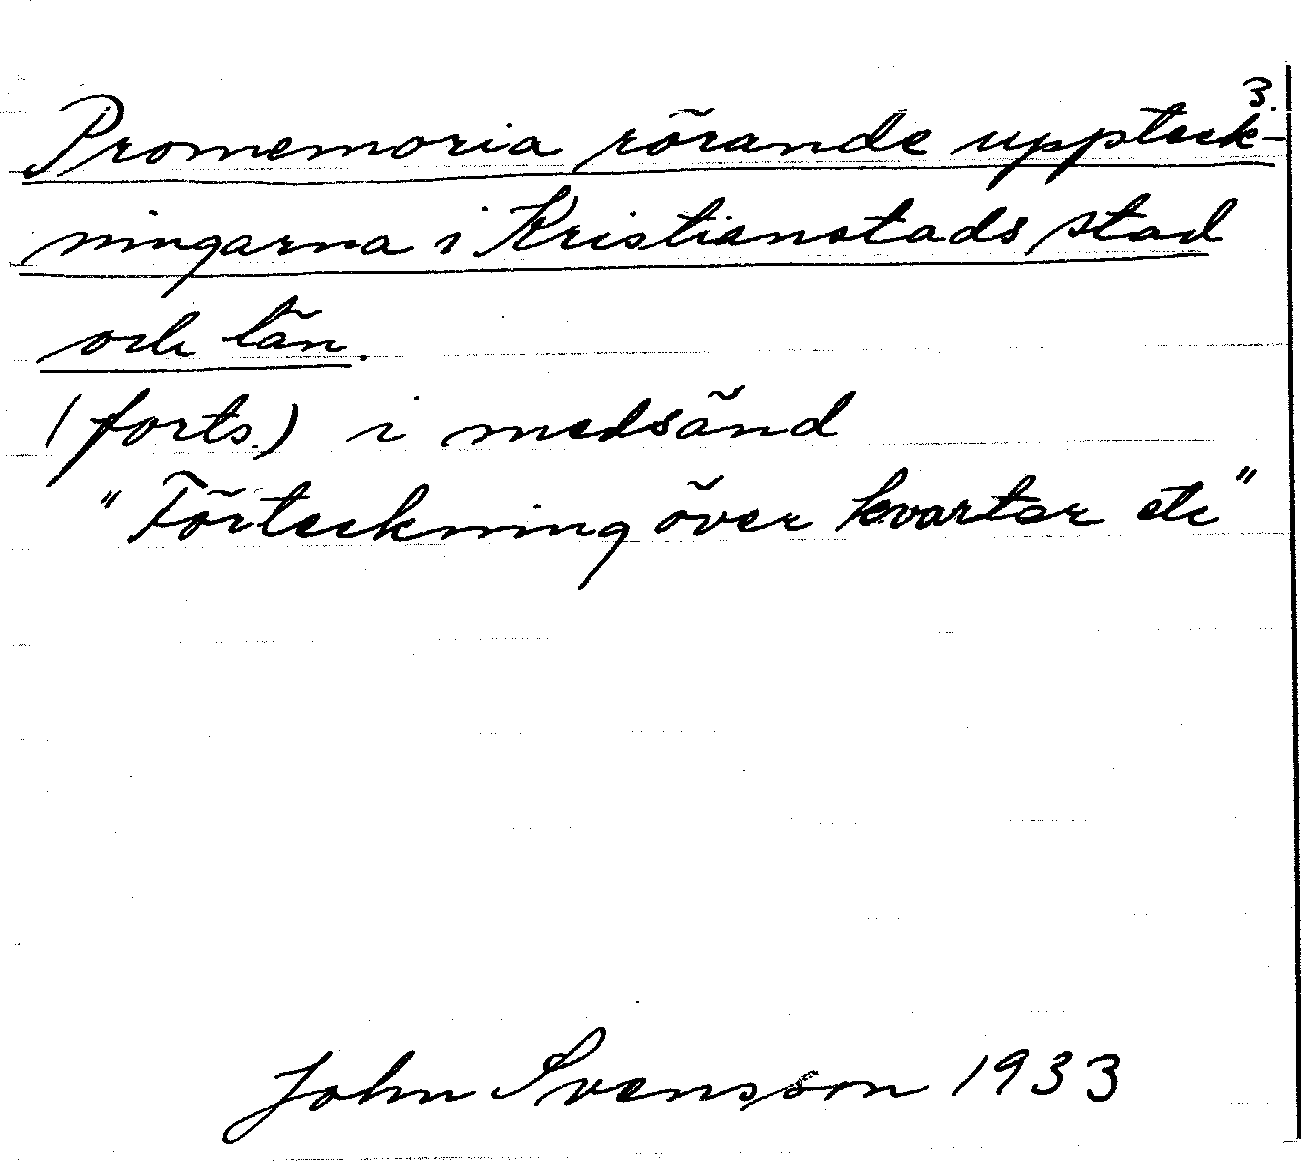 3.
Promemoria rörande uppteck-
ningarna i Kristianstads stad
och län.
(forts.) i medsänd
"Förteckning över kvarter etc"
John Svensson 1933